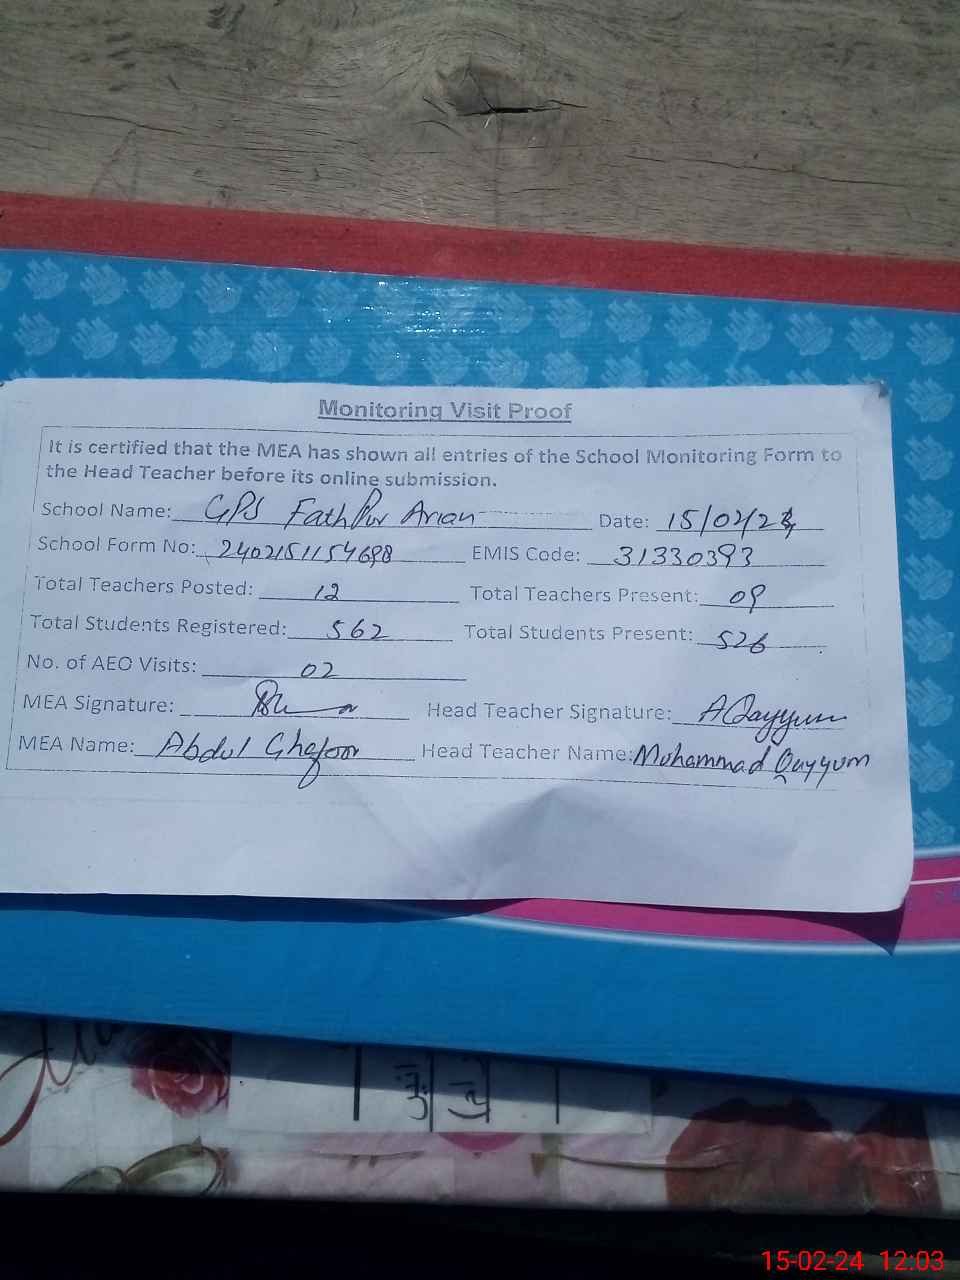 Monitoring Visit Proof
It is certified that the MEA has shown all entries of the School Monitoring Form to
the Head Teacher before its online submission.
School Name: GPS FathPur Arian Date: 15/02/24
School Form No: 2402151154698 EMIS Code: 31330393
Total Teachers Posted: 12 Total Teachers Present: 09
Total Students Registered: 562 Total Students Present: 526
No. of AEO Visits: 02
MEA Signature: Head Teacher Signature: AQayyum
MEA Name: Abdul Ghafoor Head Teacher Name: Mohammad Qayyum
15-02-24 12:03